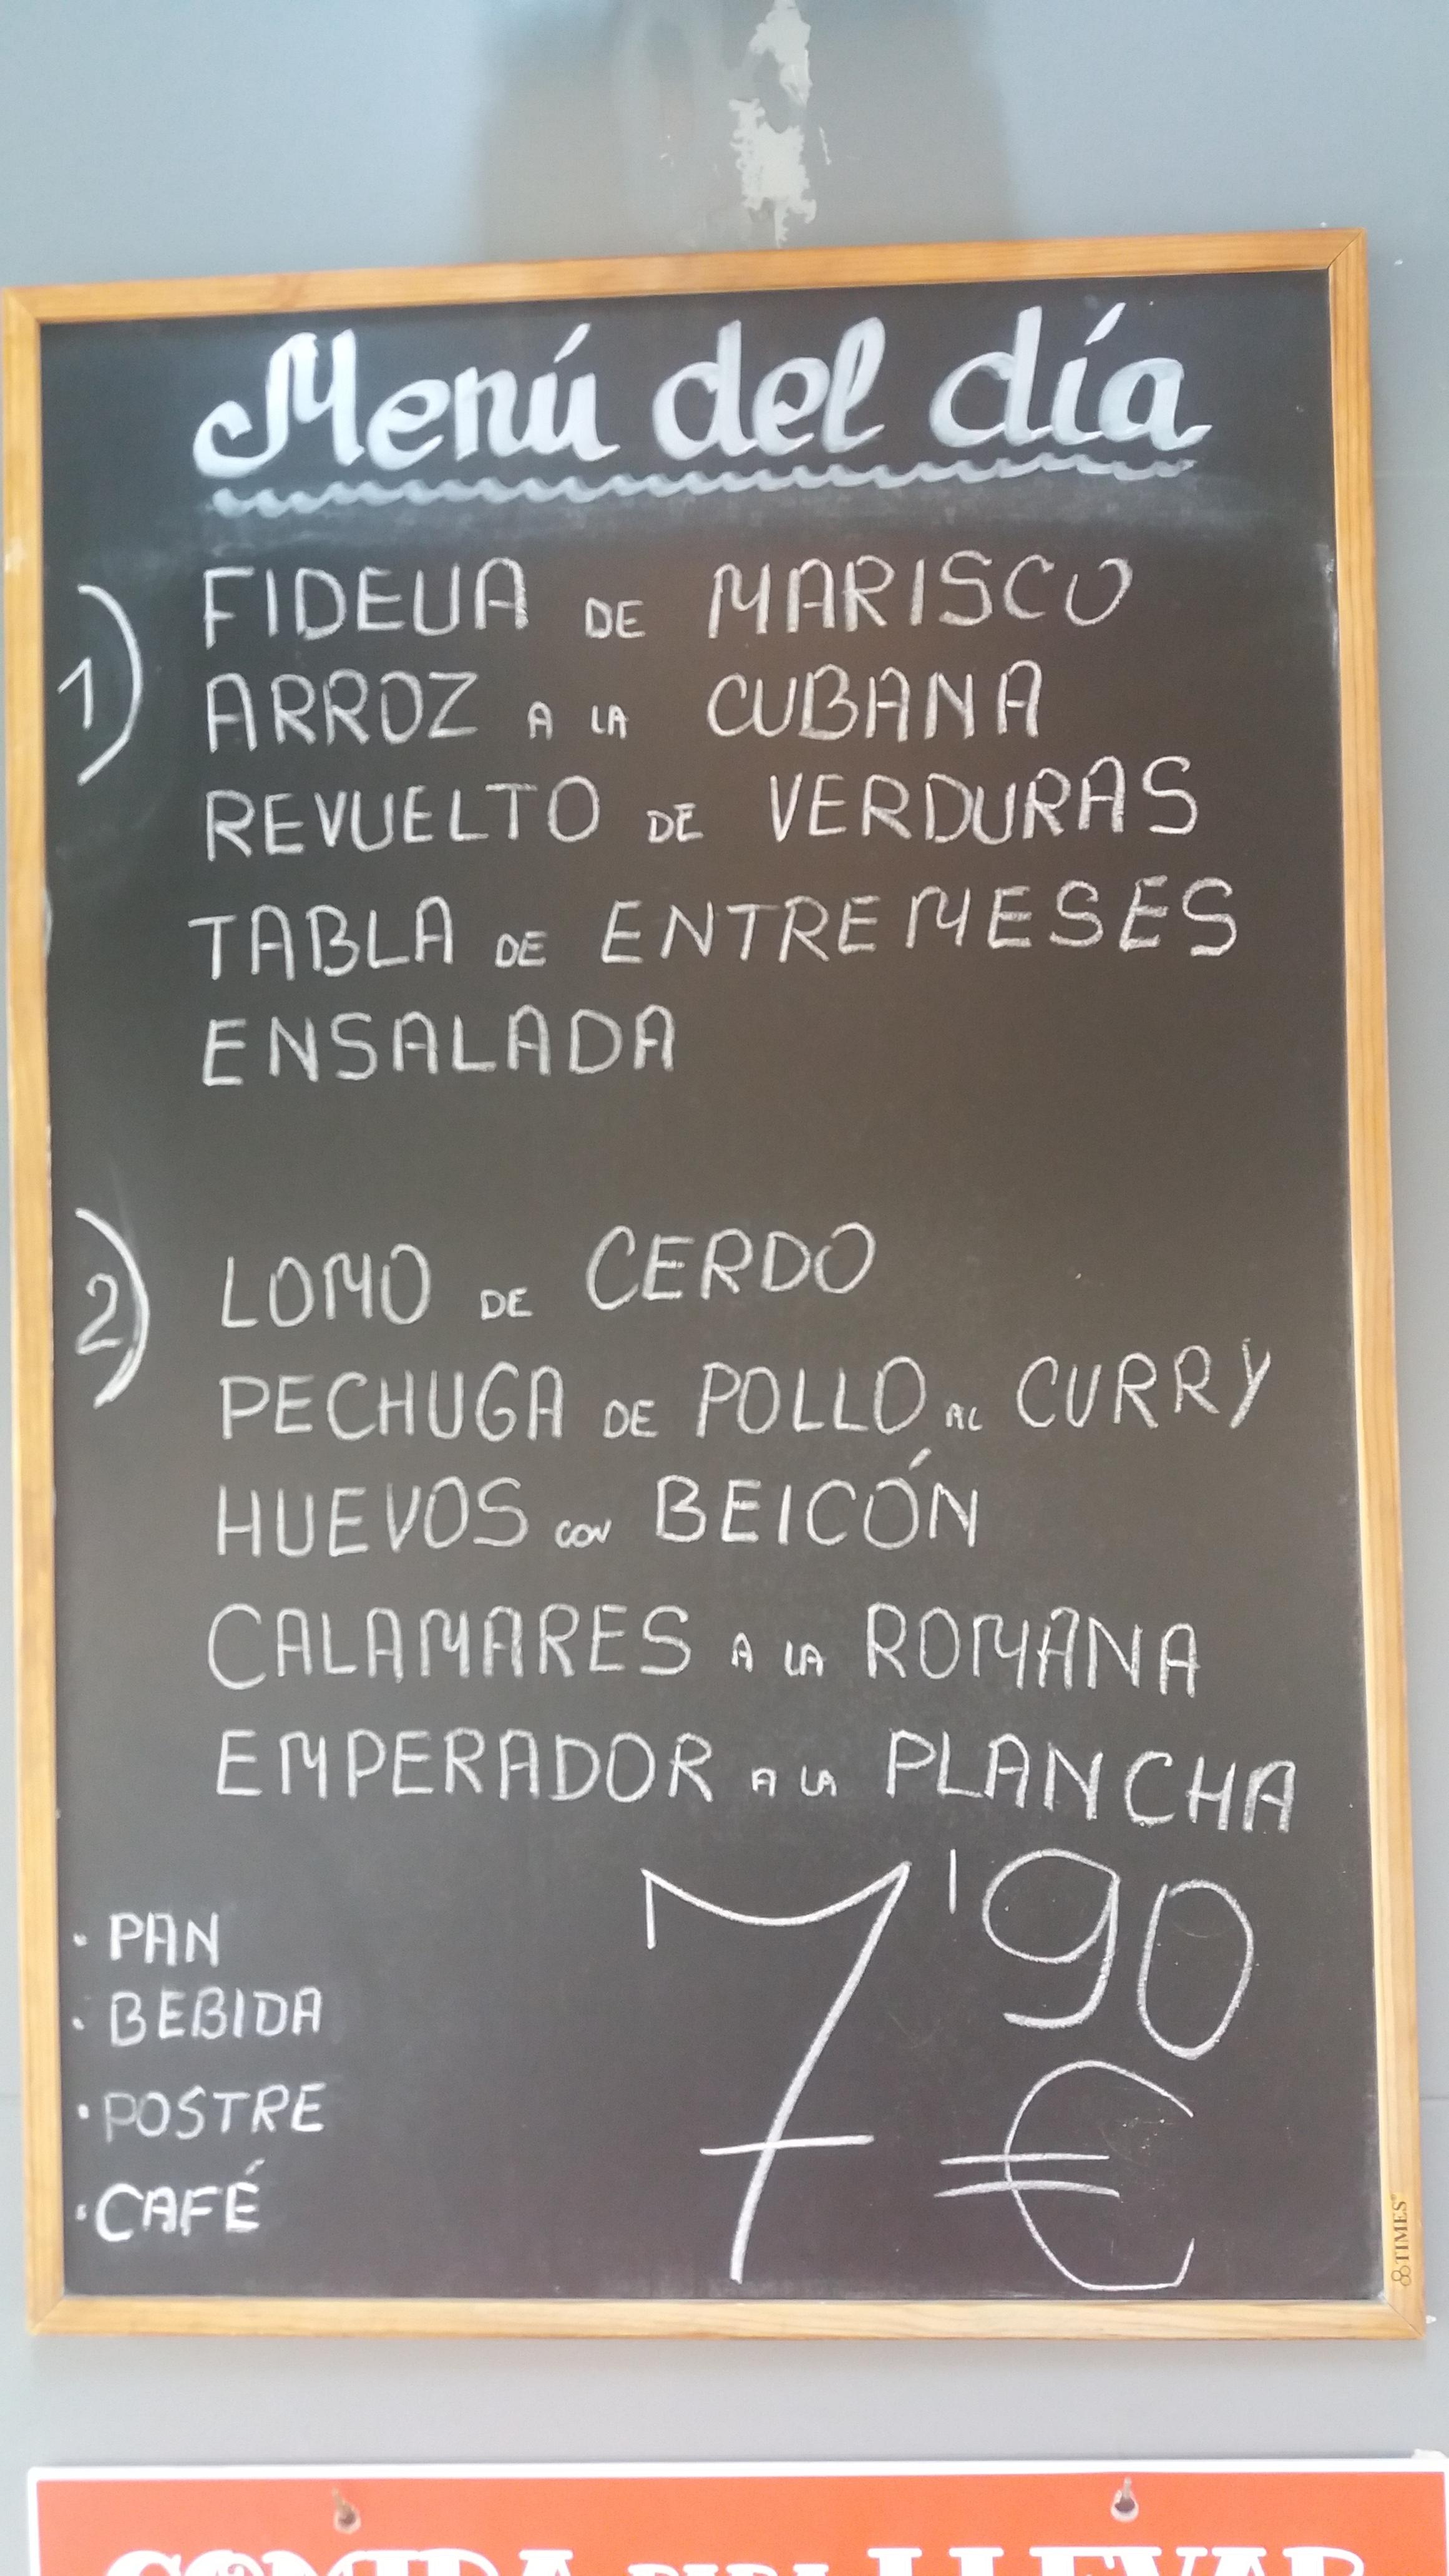 Menú del día
1) FIDEUA DE MARISCO
ARROZ A LA CUBANA
REVUELTO DE VERDURAS
TABLA DE ENTREMESES
ENSALADA
2) LOMO DE CERDO
PECHUGA DE POLLO AL CURRY
HUEVOS CON BEICÓN
CALAMARES A LA ROMANA
EMPERADOR A LA PLANCHA
· PAN
· BEBIDA
· POSTRE
· CAFÉ
7'90 €
TIMES
COMIDA PARA LLEVAR